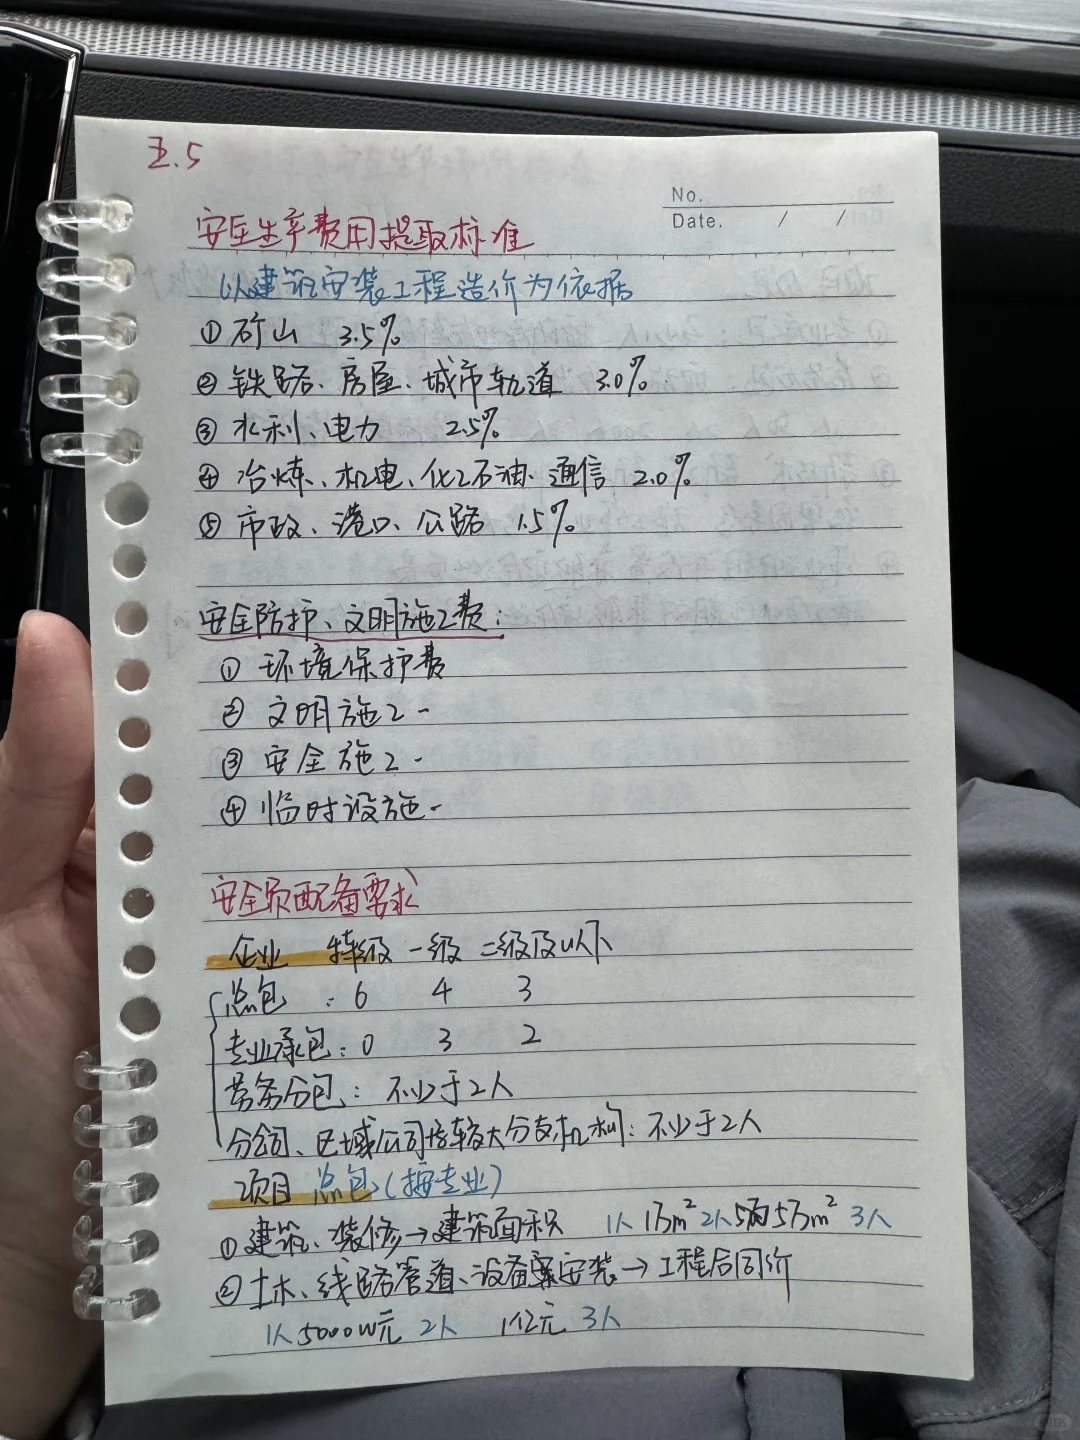 Z.5
No.
Date. / /
安全生产费用提取标准
以建筑安装工程造价为依据
① 矿山 3.5%
② 铁路、房屋、城市轨道 3.0%
③ 水利、电力 2.5%
④ 冶炼、机电、化工石油、通信 2.0%
⑤ 市政、港口、公路 1.5%
安全防护、文明施工费:
① 环境保护费
② 文明施工-
③ 安全施工-
④ 临时设施-
安全员配备要求
企业 特级 一级 二级及以下
总包: 6 4 3
专业承包: 0 3 2
劳务分包: 不少于2人
分公司、区域公司等较大分支机构: 不少于2人
项目 总包(按专业)
① 建筑、装修→建筑面积 1人 1万m² 2人 5万m² 3人
② 土木、线路管道、设备安装→工程合同价
1人 5000W元 2人 1亿元 3人